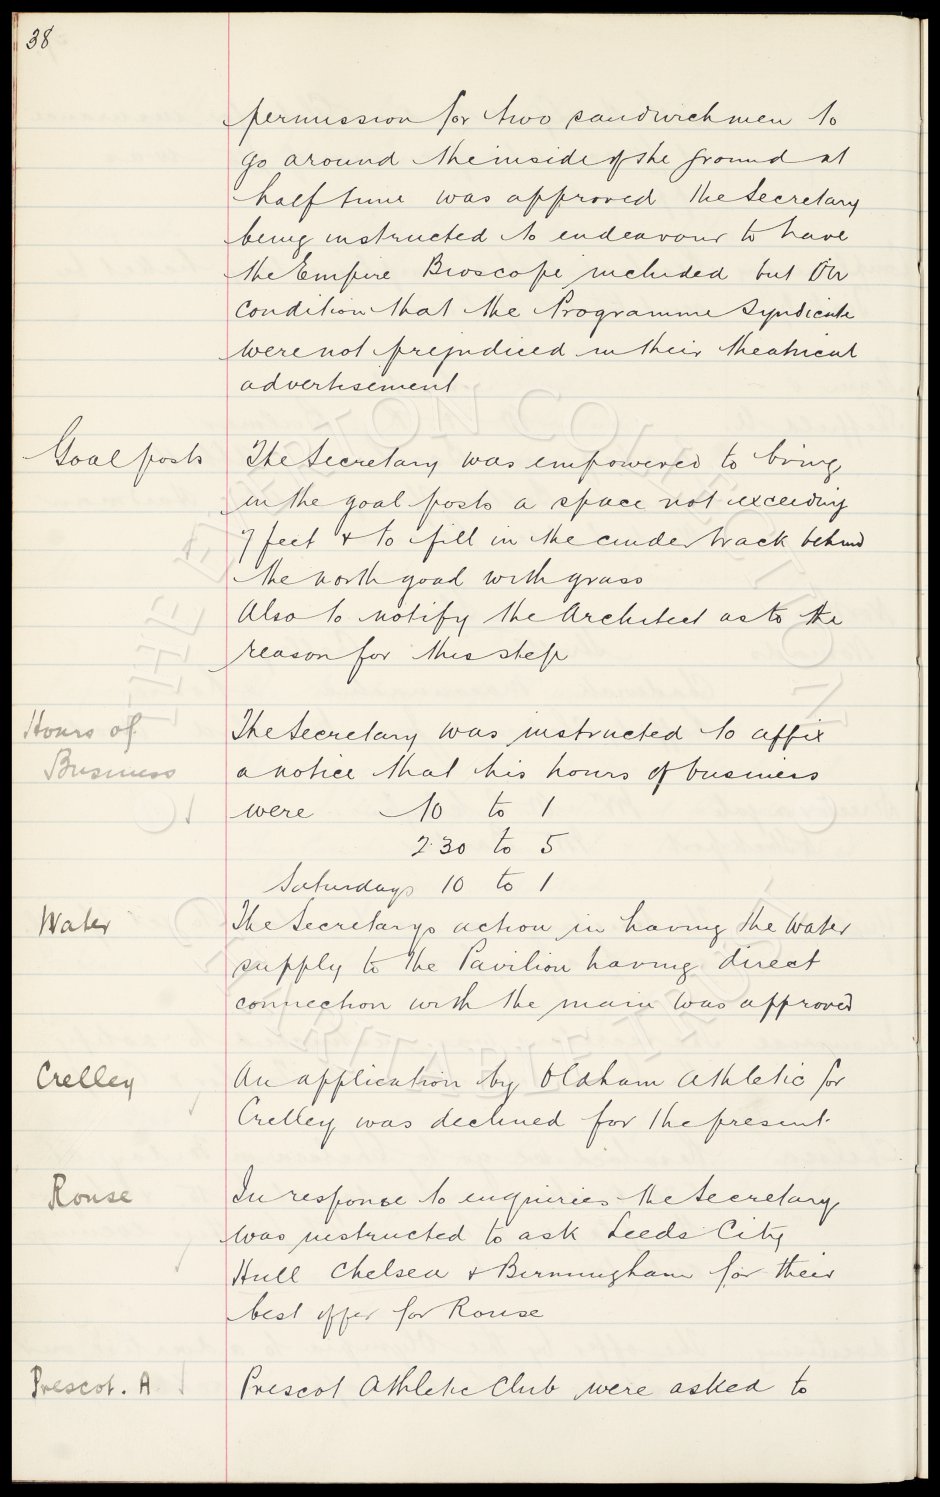 38
permission for two sandwichmen to
go around the inside of the ground at
half time was approved the Secretary
being instructed to endeavour to have
the Empire Bioscope included but on
condition that the Programme Syndicate
were not prejudiced in their theatrical
advertisement
Goal posts The Secretary was empowered to bring
in the goal posts a space not exceeding
7 feet & to fill in the cinder track behind
the north goal with grass
Also to notify the Architect as to the
reason for this step
Hours of The Secretary was instructed to affix
Business a notice that his hours of business
were 10 to 1
2.30 to 5
Saturdays 10 to 1
Water The Secretarys action in having the water
supply to the Pavilion having direct
connection with the main was approved
Crelley An application by Oldham Athletic for
Crelley was declined for the present.
Rouse In response to enquiries the Secretary
was instructed to ask Leeds City
Hull Chelsea & Birmingham for their
best offer for Rouse
Prescot. A Prescot Athletic Club were asked to
© THE EVERTON COLLECTION
CHARITABLE TRUST